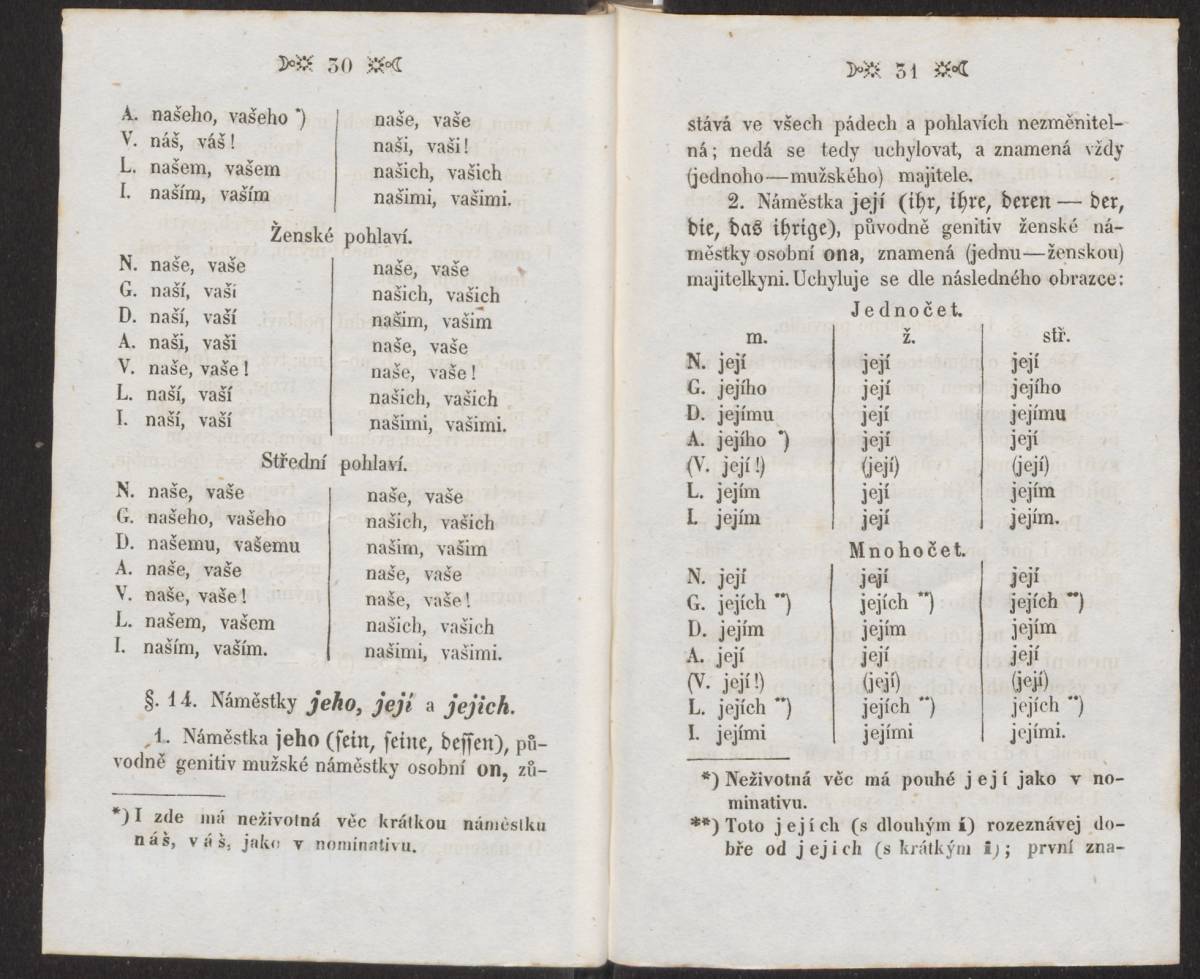 30
A. našeho, vašeho *) naše, vaše
V. náš, váš! naši, vaši!
L. našem, vašem našich, vašich
I. naším, vaším našimi, vašimi.
Ženské pohlaví.
N. naše, vaše naše, vaše
G. naší, vaší našich, vašich
D. naší, vaší našim, vašim
A. naši, vaši naše, vaše
V. naše, vaše! naše, vaše!
L. naší, vaší našich, vašich
I. naší, vaší našimi, vašimi.
Střední pohlaví.
N. naše, vaše naše, vaše
G. našeho, vašeho našich, vašich
D. našemu, vašemu našim, vašim
A. naše, vaše naše, vaše
V. naše, vaše! naše, vaše!
L. našem, vašem našich, vašich
I. naším, vaším. našimi, vašimi.
§. 14. Náměstky jeho, její a jejich.
1. Náměstka jeho (sein, seine, dessen), pů-
vodně genitiv mužské náměstky osobní on, zů-
*) I zde má neživotná věc krátkou náměstku
náš, váš, jako v nominativu.
31
stává ve všech pádech a pohlavích nezměnitel-
ná; nedá se tedy uchylovat, a znamená vždy
(jednoho—mužského) majitele.
2. Náměstka její (ihr, ihre, deren — der,
die, das ihrige), původně genitiv ženské ná-
městky osobní ona, znamená (jednu—ženskou)
majitelkyni. Uchyluje se dle následného obrazce:
Jednočet.
m. ž. stř.
N. její její její
G. jejího její jejího
D. jejímu její jejímu
A. jejího *) její její
(V. její!) (její) (její)
L. jejím její jejím
I. jejím její jejím.
Mnohočet.
N. její její její
G. jejích **) jejích **) jejích **)
D. jejím jejím jejím
A. její její její
(V. její!) (její) (její)
L. jejích **) jejích **) jejích **)
I. jejími jejími jejími.
*) Neživotná věc má pouhé její jako v no-
minativu.
**) Toto jejích (s dlouhým í) rozeznávej do-
bře od jejich (s krátkým i); první zna-